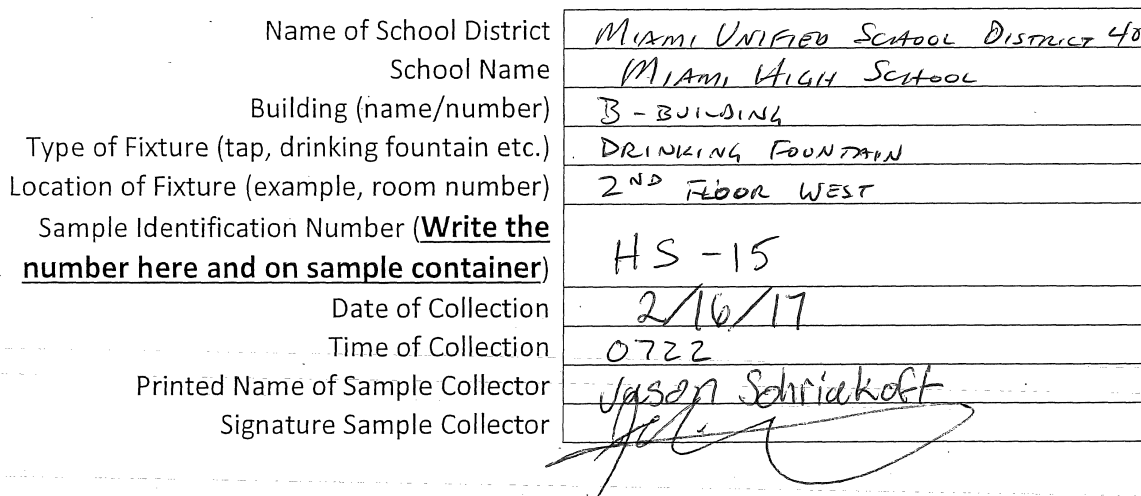 Name of School District MIAMI UNIFIED SCHOOL DISTRICT 40
School Name MIAMI HIGH SCHOOL
Building (name/number) B - BUILDING
Type of Fixture (tap, drinking fountain etc.) DRINKING FOUNTAIN
Location of Fixture (example, room number) 2ND FLOOR WEST
Sample Identification Number (Write the
number here and on sample container) HS-15
Date of Collection 2/16/17
Time of Collection 0722
Printed Name of Sample Collector Jason
Signature Sample Collector